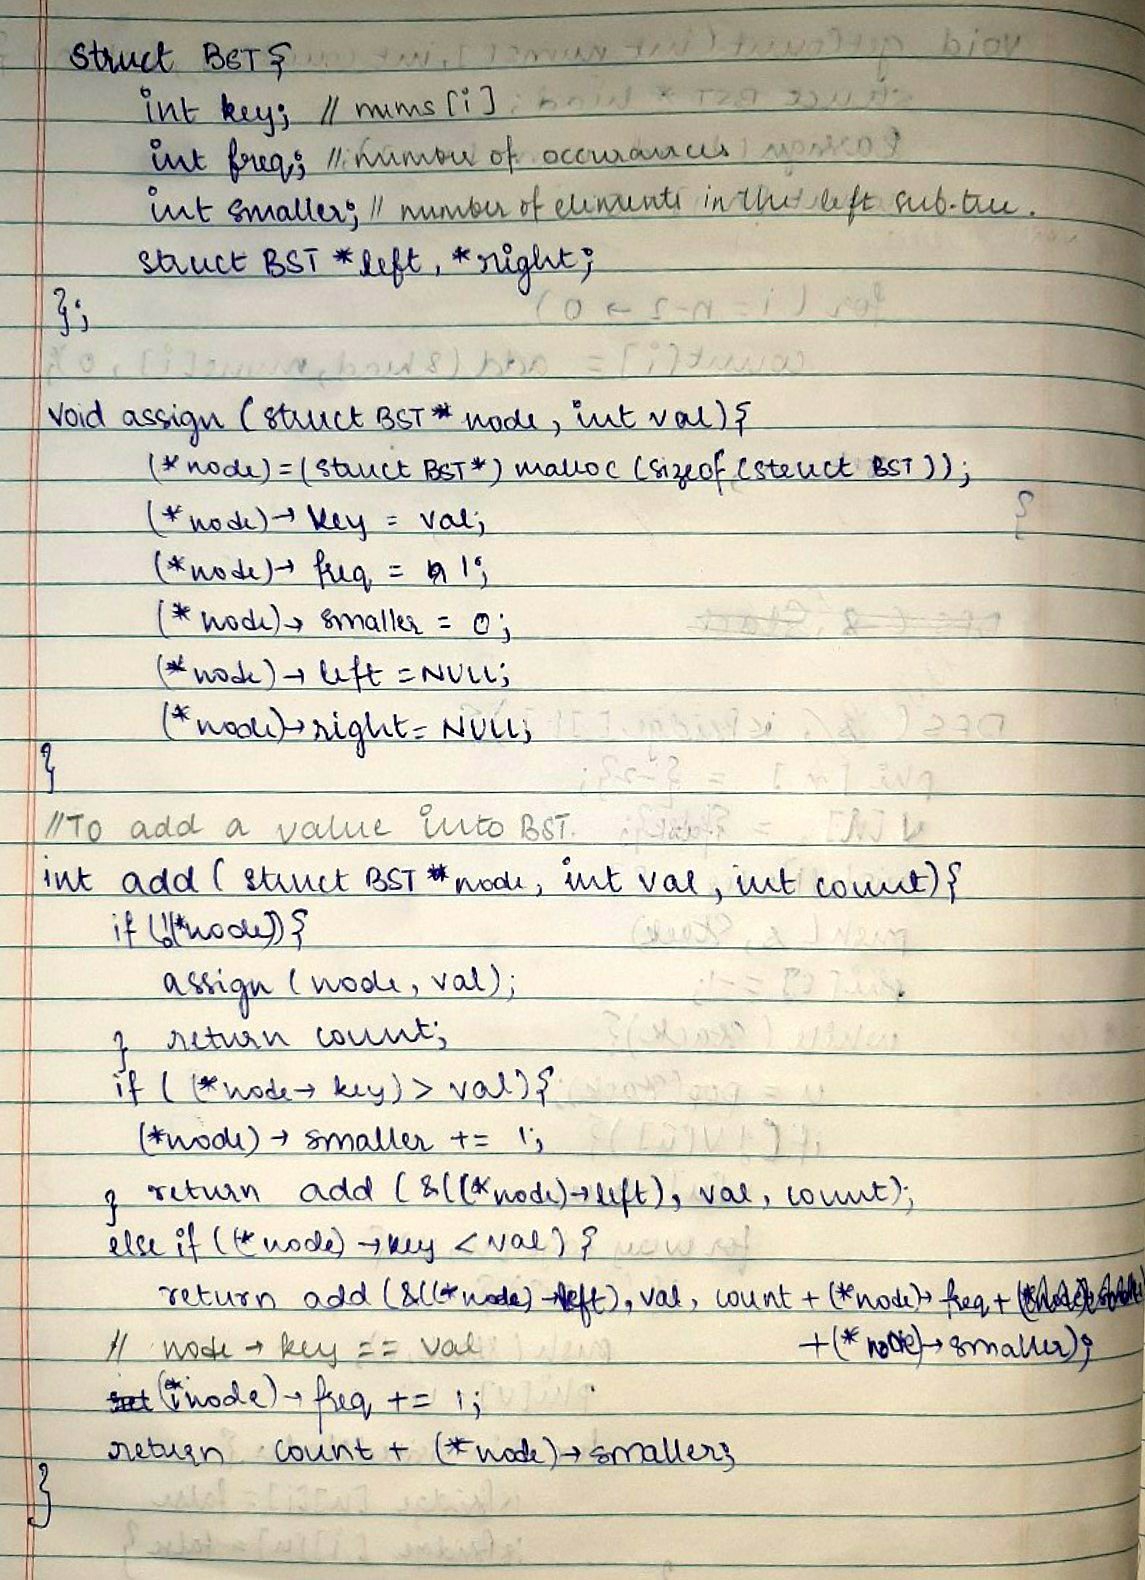 struct BST {
int key; // nums[i]
int freq; // number of occurances
int smaller; // number of elements in the left sub-tree.
struct BST *left, *right;
};
void assign (struct BST** node, int val){
(*node) = (struct BST*) malloc (sizeof (struct BST));
(*node)→ key = val;
(*node)→ freq = 1;
(*node)→ smaller = 0;
(*node)→ left = NULL;
(*node)→ right = NULL;
}
//To add a value into BST.
int add ( struct BST **node, int val, int count){
if (!(*node)) {
assign (node, val);
} return count;
if ( (*node→ key) > val) {
(*node) → smaller += 1;
} return add (&((*node)→left), val, count);
else if ((*node) → key < val) {
return add (&((*node)→left), val, count + (*node)→ freq +
+ (*node)→ smaller);
// node → key == val
(*node)→ freq += 1;
return count + (*node)→ smaller;
}